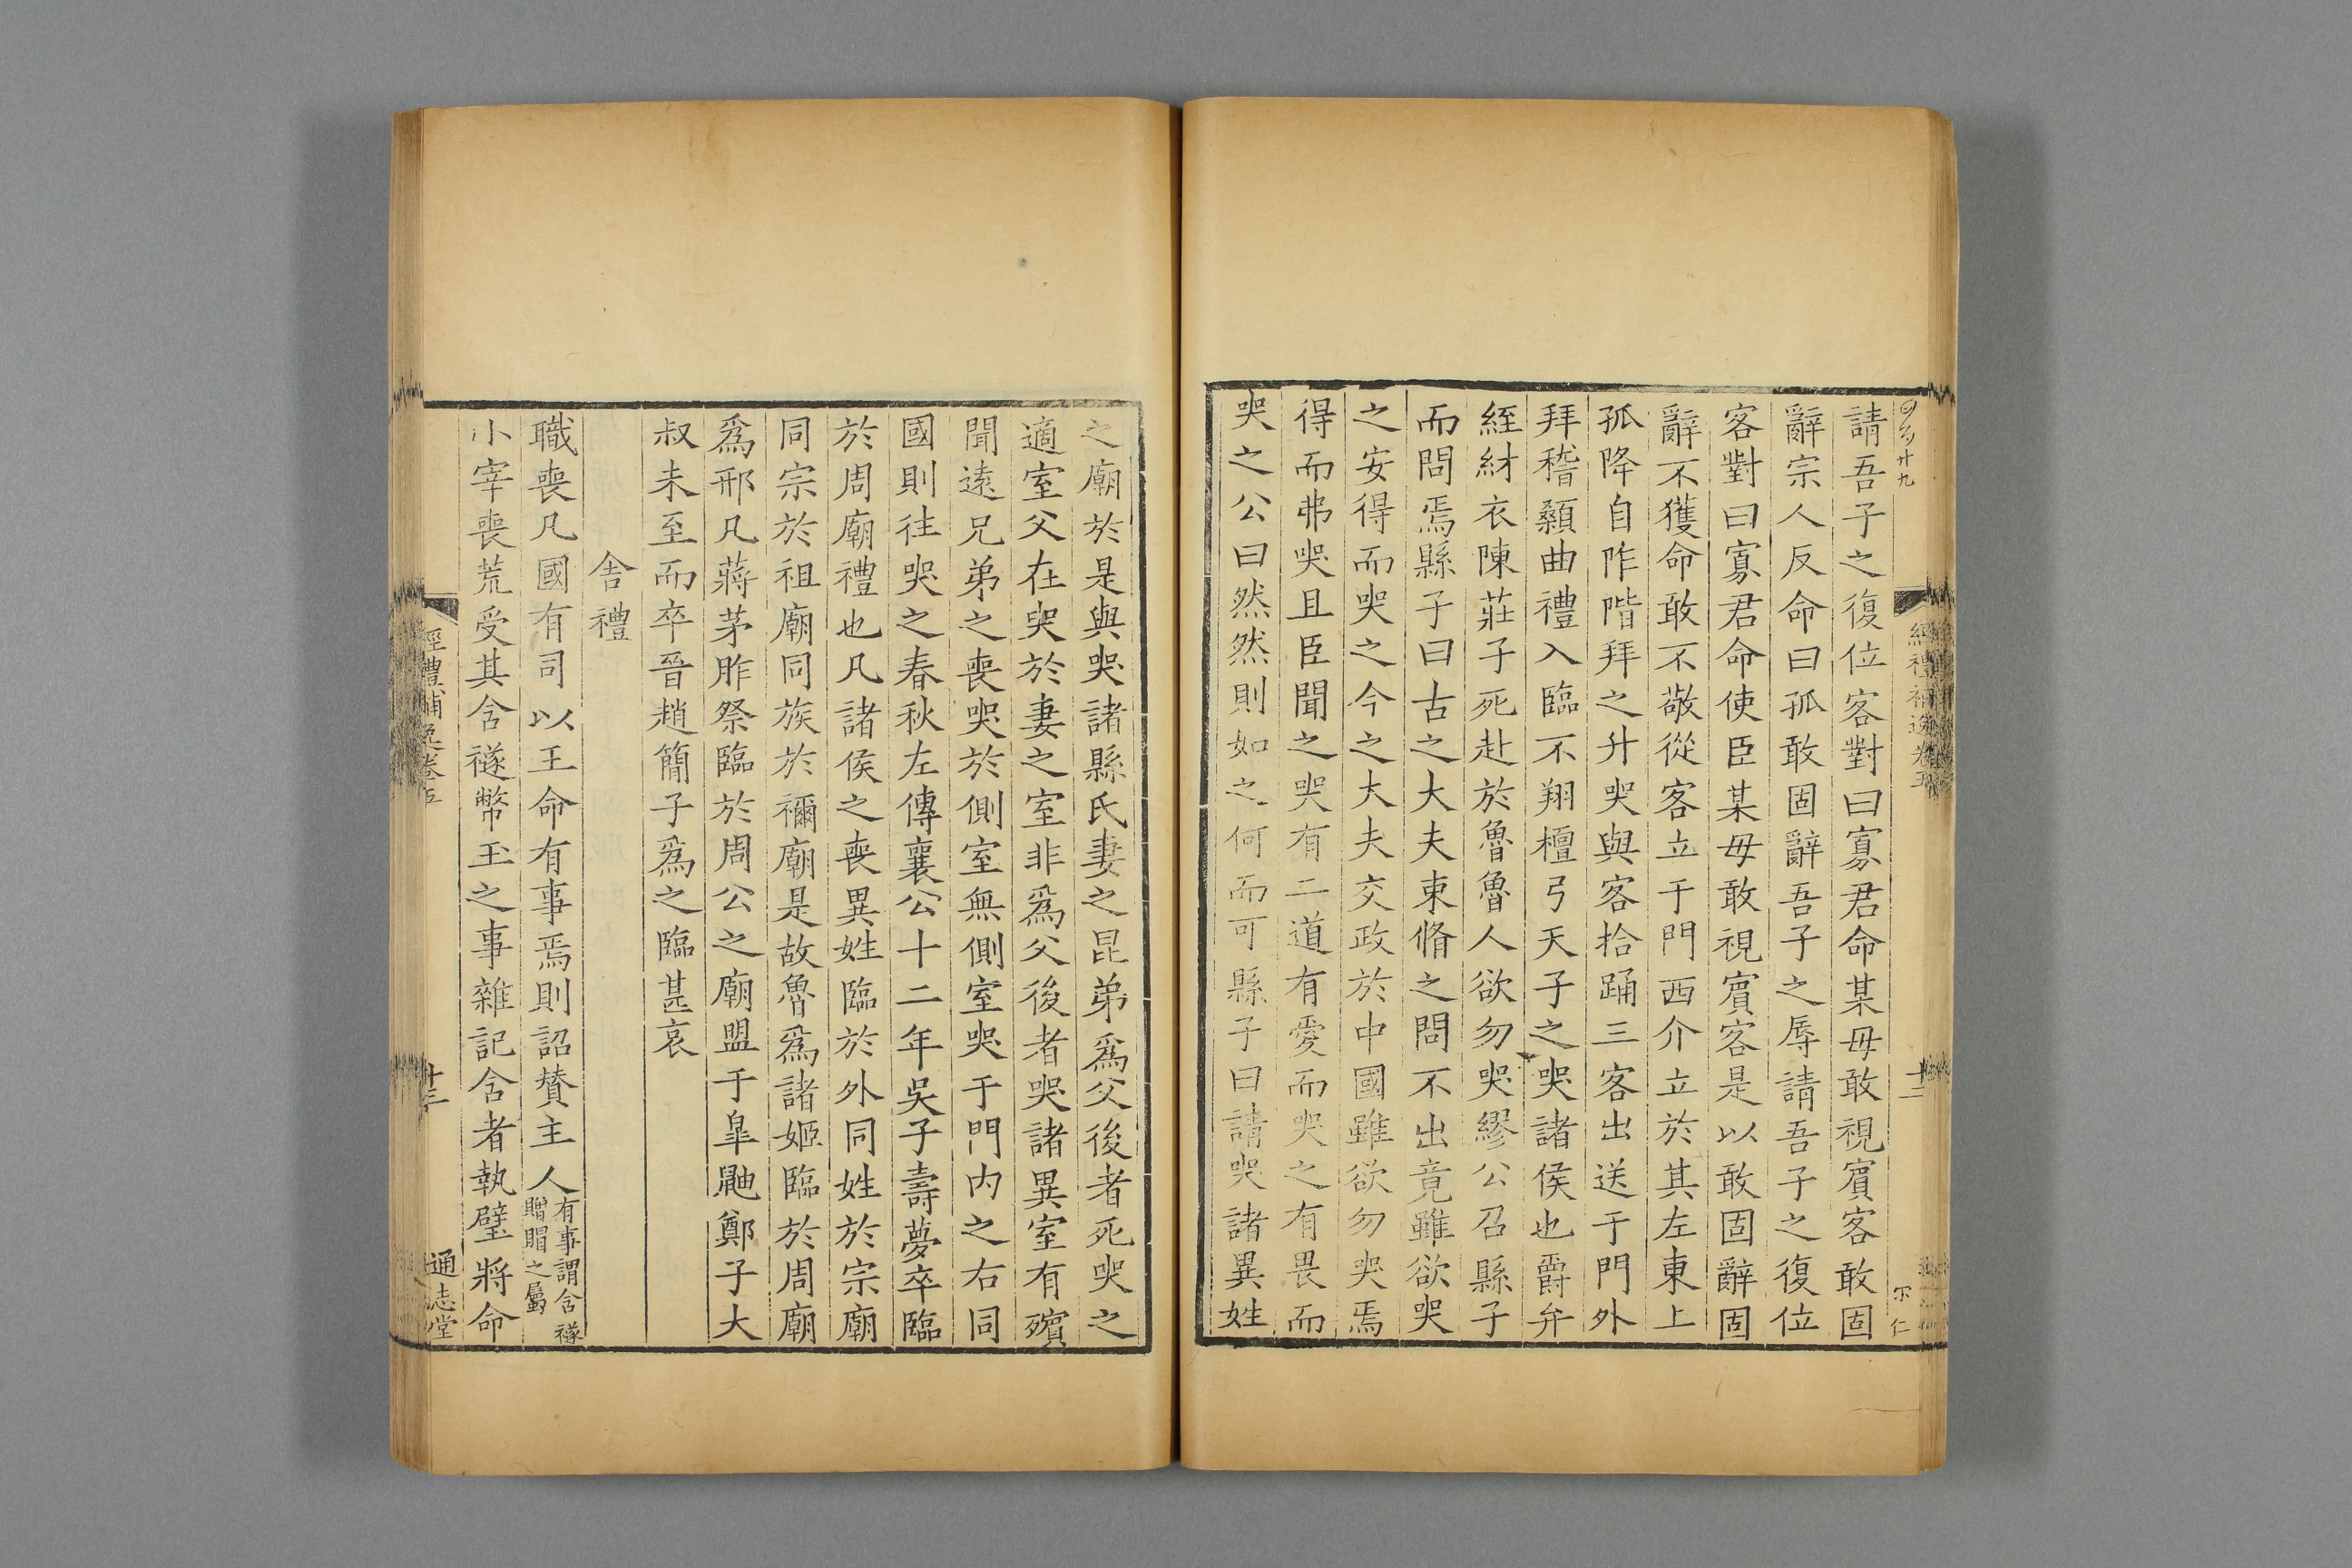 請吾子之復位客對曰寡君命某毋敢視賓客敢固
辭宗人反命曰孤敢固辭吾子之辱請吾子之復位
客對曰寡君命使臣某毋敢視賓客是以敢固辭固
辭不獲命敢不敬從客立于門西介立於其左東上
孤降自阼階拜之升哭與客拾踊三客出送于門外
拜稽顙曲禮入臨不翔檀弓天子之哭諸侯也爵弁
絰紂衣陳莊子死赴於魯魯人欲勿哭繆公召縣子
而問焉縣子曰古之大夫束脩之問不出竟雖欲哭
之安得而哭之今之大夫交政於中國雖欲勿哭焉
得而弗哭且臣聞之哭有二道有愛而哭之有畏而
哭之公曰然然則如之何而可縣子曰請哭諸異姓
之廟於是與哭諸縣氏妻之昆弟爲父後者死哭之
適室父在哭於妻之室非爲父後者哭諸異室有殯
聞遠兄弟之喪哭於側室無側室哭于門内之右同
國則往哭之春秋左傳襄公十二年吳子壽夢卒臨
於周廟禮也凡諸侯之喪異姓臨於外同姓於宗廟
同宗於祖廟同族於禰廟是故魯爲諸姬臨於周廟
爲邢凡蔣茅胙祭臨於周公之廟盟于皐鼬鄭子大
叔未至而卒晉趙簡子爲之臨甚哀
含禮
職喪凡國有司以王命有事焉則詔賛主人有事謂含襚
贈賵之屬
小宰喪荒受其含襚幣玉之事雜記含者執璧將命
經禮補逸卷五
十二
經禮補逸卷五
十三
通志堂